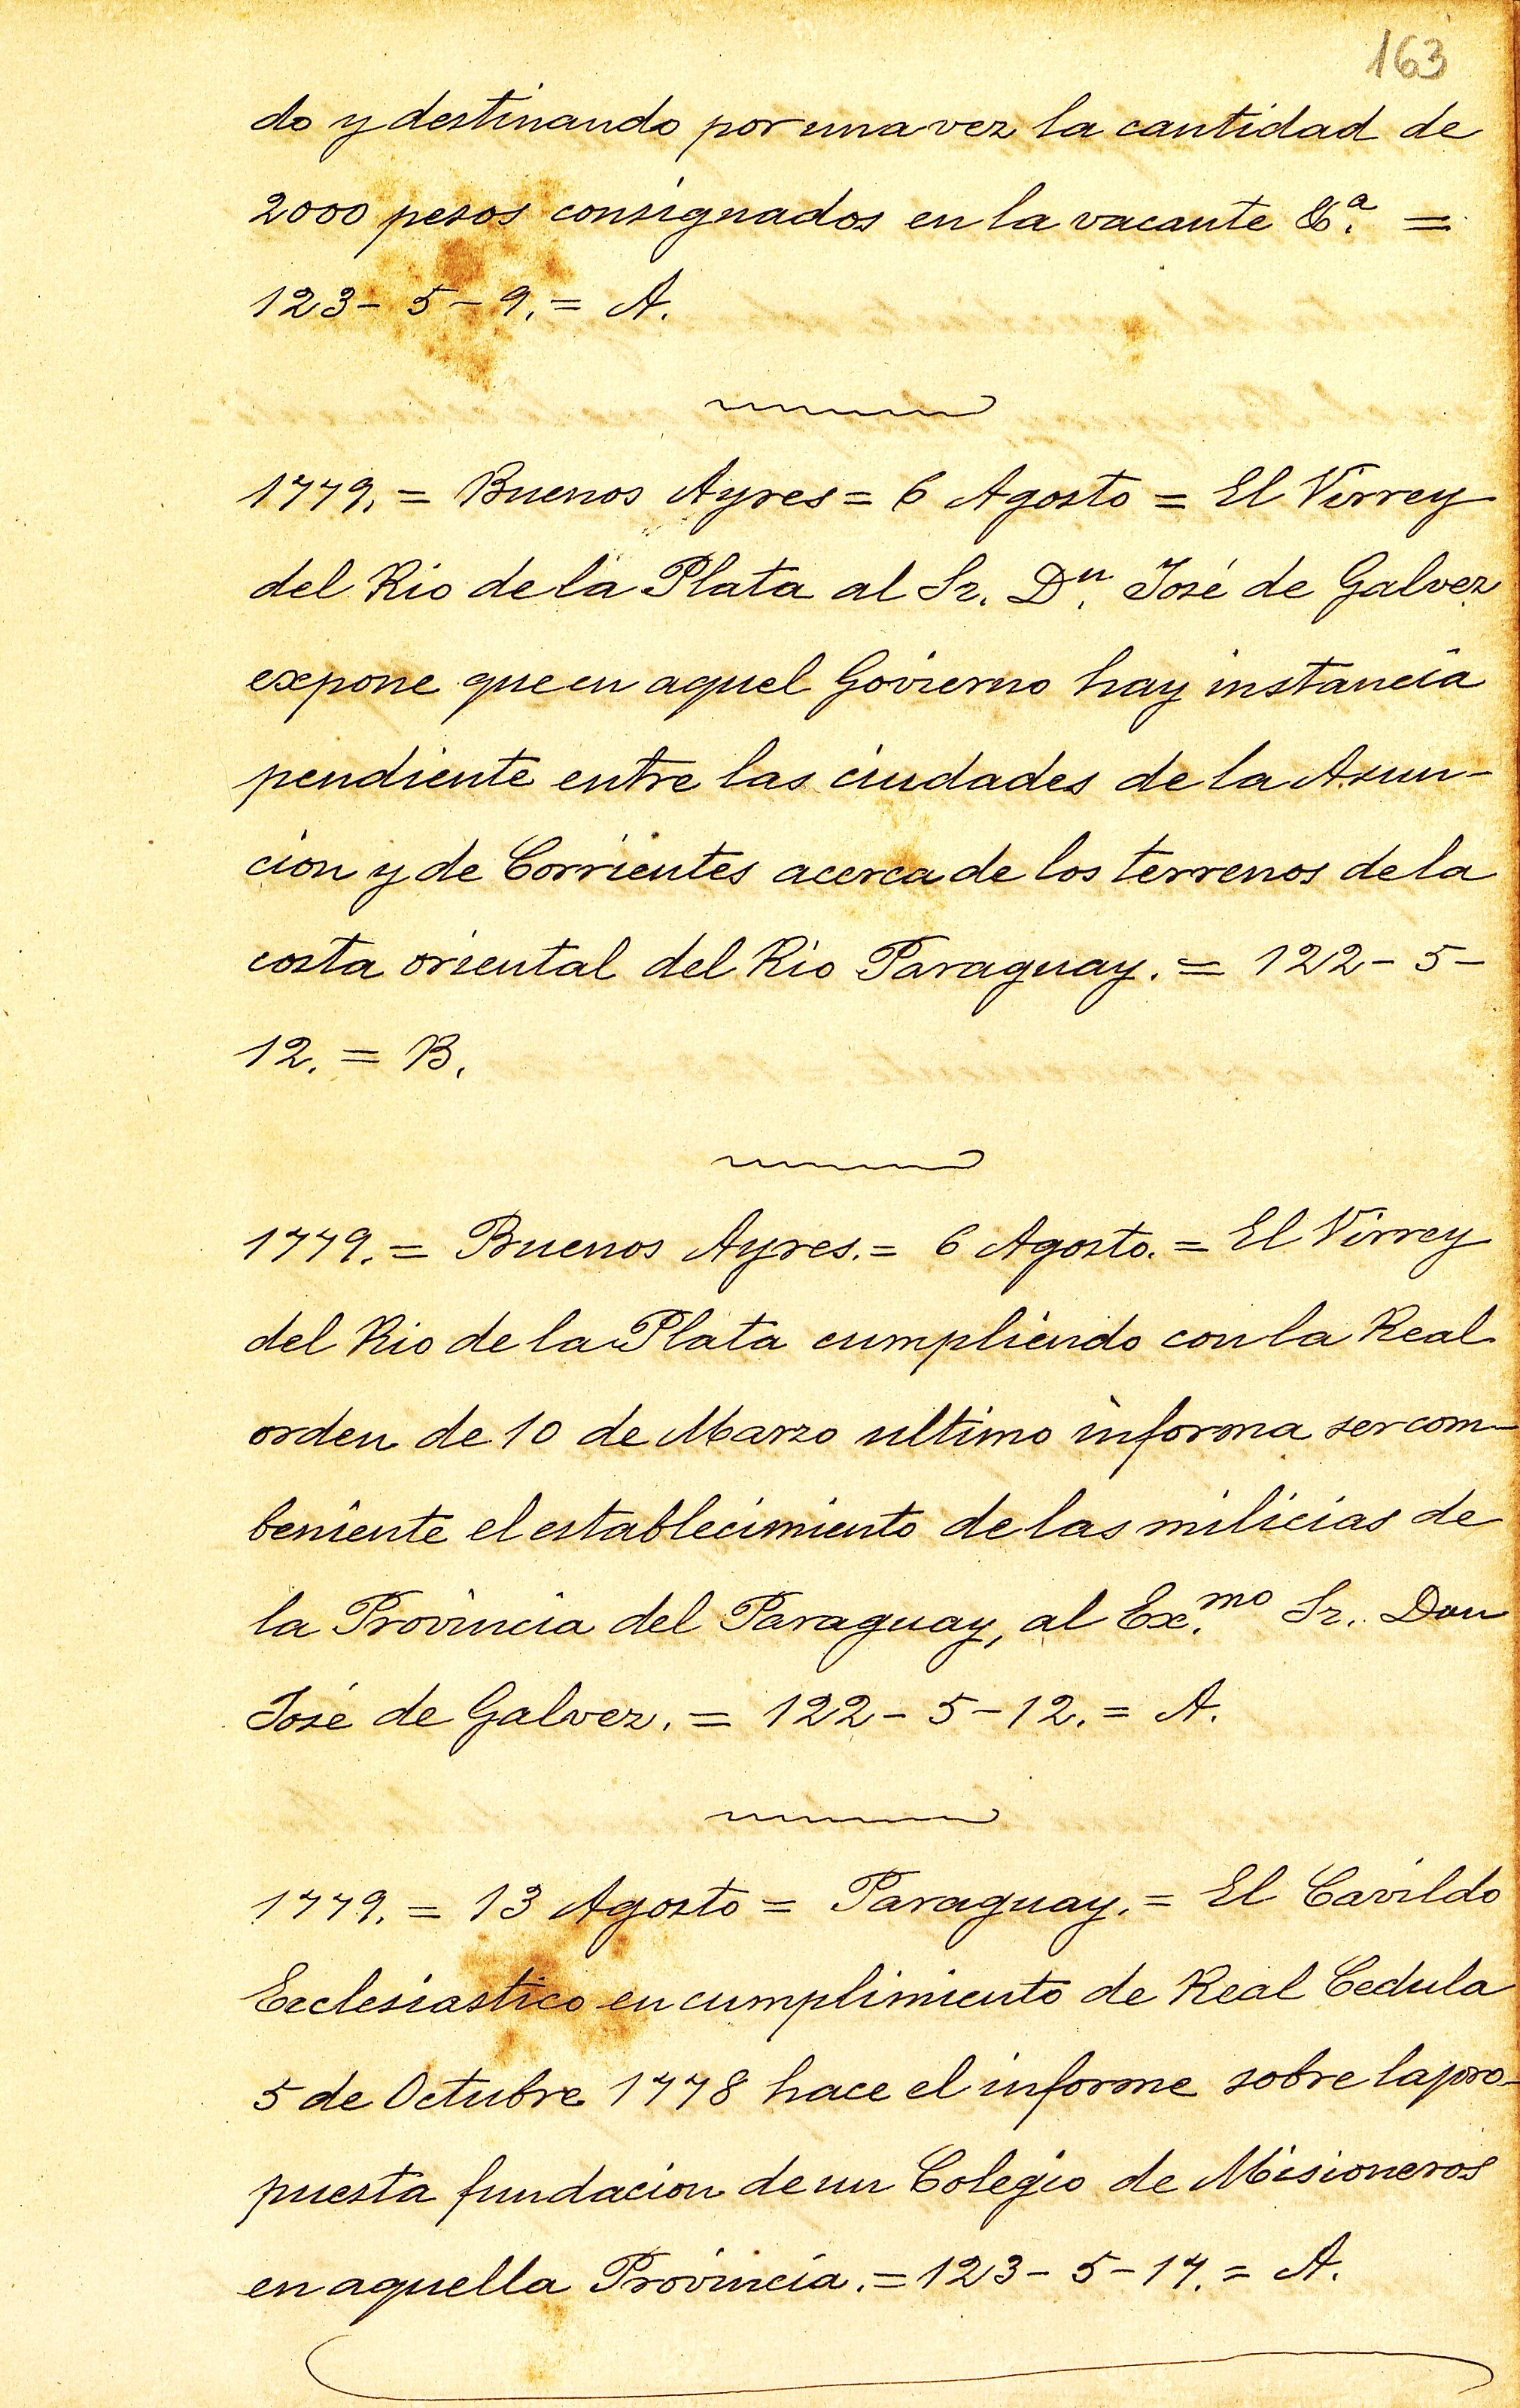 163
do y destinando por una vez la cantidad de
2000 pesos consignados en la vacante &ª. =
123-5-9.= A.
1779.= Buenos Ayres = 6 Agosto = El Virrey
del Rio de la Plata al Sr. Dⁿ. José de Galvez
expone que en aquel Govierno hay instancia
pendiente entre las ciudades de la Asun-
cion y de Corrientes acerca de los terrenos de la
costa oriental del Rio Paraguay. = 122-5-
12. = B.
1779.= Buenos Ayres.= 6 Agosto.= El Virrey
del Rio de la Plata cumpliendo con la Real
orden de 10 de Marzo ultimo informa ser com-
beniente el establecimiento de las milicias de
la Provincia del Paraguay, al Ex.ᵐᵒ Sr. Don
José de Galvez. = 122-5-12.= A.
1779. = 13 Agosto = Paraguay. = El Cavildo
Ecclesiastico en cumplimiento de Real Cedula
5 de Octubre 1778 hace el informe sobre la pro-
puesta fundacion de un Colegio de Misioneros
en aquella Provincia.= 123-5-17.= A.